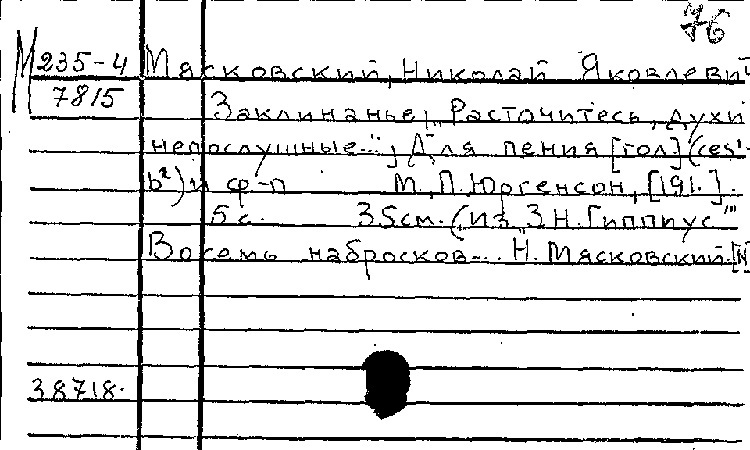 76
М 235-4 Мясковский, Николай Яковлевич
7815 Заклинанье „Расточитесь, духи
непослушные..."; Для пения [гол] (ces¹-
b²) и ф-п М., П. Юргенсон, [191.].
5 с. 35см. (Из „З.Н. Гиппиус"
Восемь набросков... Н. Мясковский. [N
38718.